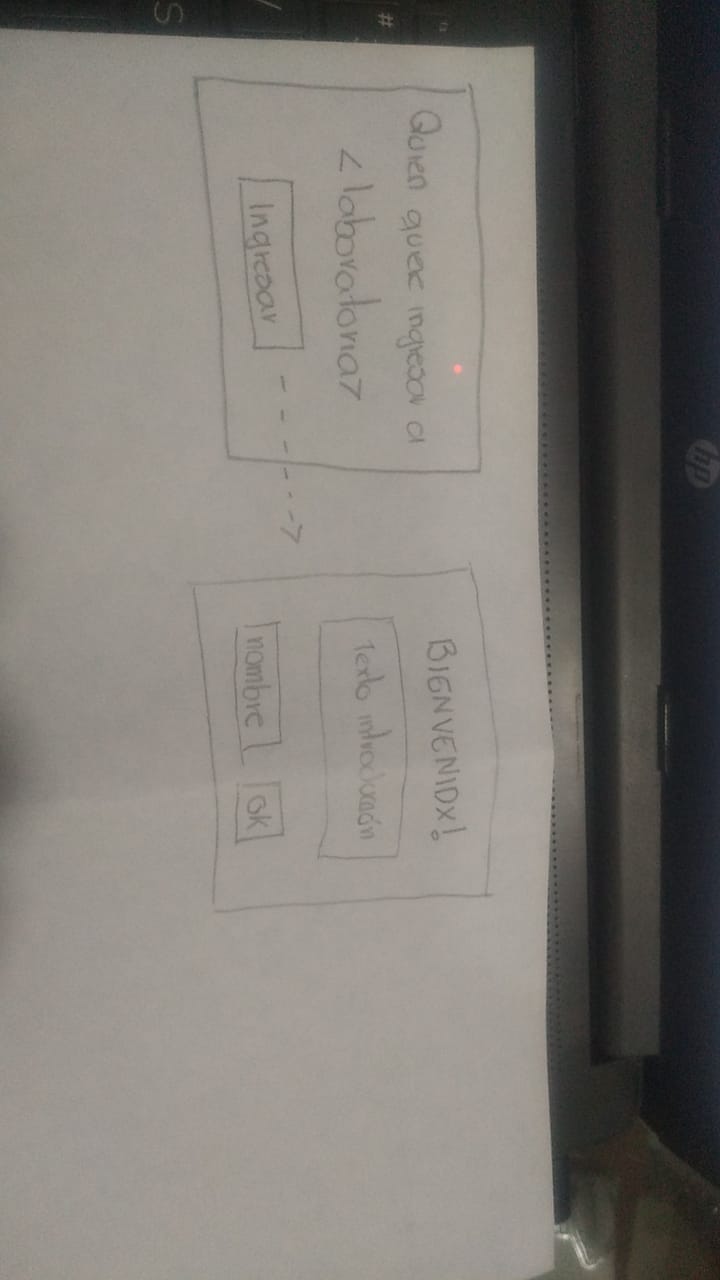 Quien quere ingresar a
<laboratoria>
Ingresar
BIENVENIDX!
Texto introducción
nombre
OK
hp
#
S